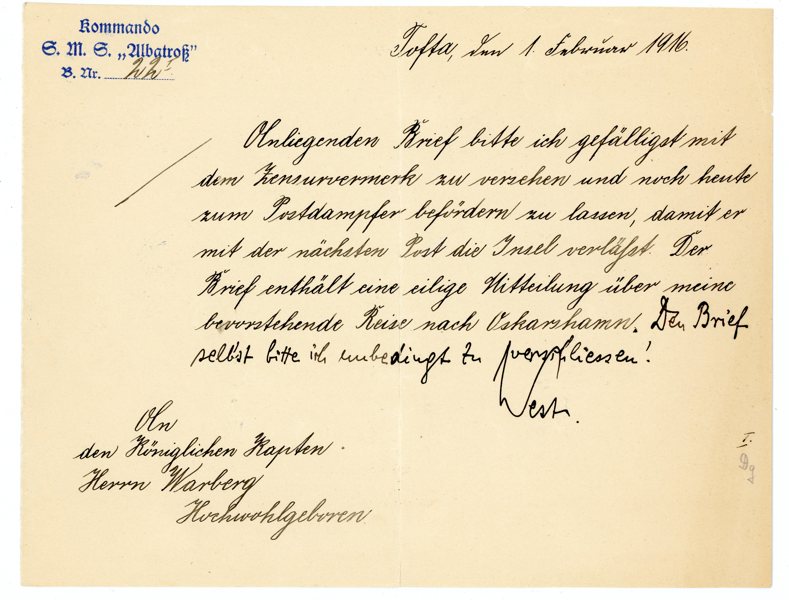 Kommando
S. M. S. „Albatroß"
B. Nr. 22 I
Tofta, den 1. Februar 1916.
Anliegenden Brief bitte ich gefälligst mit
dem Zensurvermerk zu versehen und noch heute
zum Postdampfer befördern zu lassen, damit er
mit der nächsten Post die Insel verläßt. Der
Brief enthält eine eilige Mitteilung über meine
bevorstehende Reise nach Oskarshamn. Den Brief
selbst bitte ich unbedingt zu verschliessen!
West.
An
den Königlichen Kapten
Herrn Warberg
Hochwohlgeboren
I.